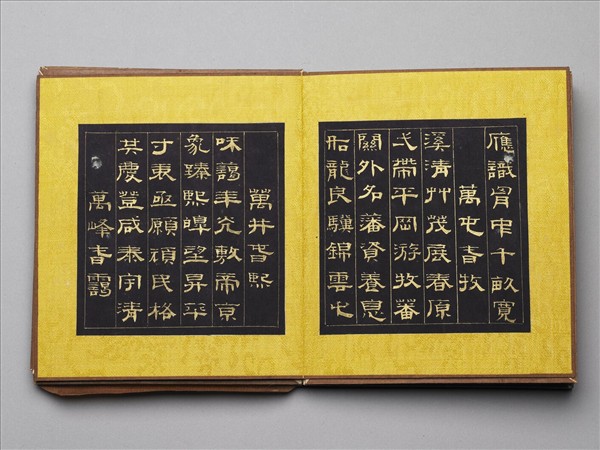 應識胷中千畝寬
萬屯春牧
溪清艸茂展春原
弌帶平岡游牧蕃
關外名藩資養息
龍良驥錦雲屯
萬井春熙
咊靄年光敷帝京
象臻熙皞望昇平
寸衷亟願頑民格
共慶登咸泰宇清
萬峰春靄